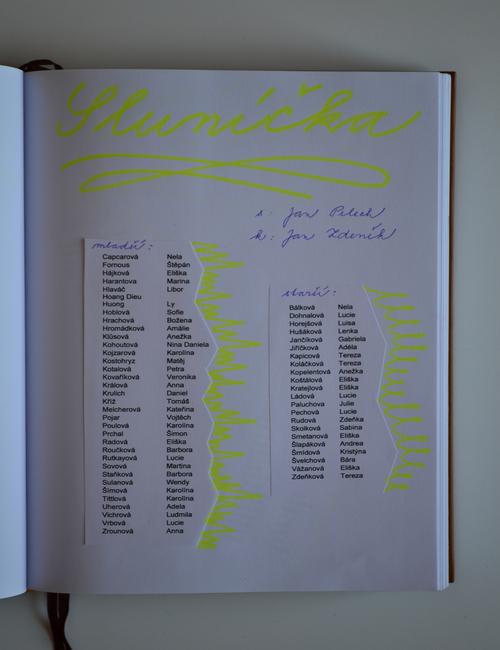 Sluníčka
s: Jan Pelech
k: Jan Zdeník
mladší:
Capcarová Nela
Fornous Štěpán
Hájková Eliška
Harantova Marina
Hlaváč Libor
Hoang Dieu
Huong Ly
Hoblová Sofie
Hrachová Božena
Hromádková Amálie
Klűsová Anežka
Kohoutová Nina Daniela
Kojzarová Karolína
Kostohryz Matěj
Kotalová Petra
Kovaříková Veronika
Králová Anna
Krulich Daniel
Kříž Tomáš
Melcherová Kateřina
Pojar Vojtěch
Poulová Karolína
Prchal Šimon
Radová Eliška
Roučková Barbora
Rutkayová Lucie
Sovová Martina
Staňková Barbora
Sulanová Wendy
Šímová Karolína
Tittlová Karolína
Uherová Adela
Vichrová Ludmila
Vrbová Lucie
Zrounová Anna
starší:
Bálková Nela
Dohnalová Lucie
Horejšová Luisa
Hušáková Lenka
Jančíková Gabriela
Jiříčková Adéla
Kapicová Tereza
Koláčková Tereza
Kopelentová Anežka
Koštálová Eliška
Kratejlová Eliška
Ládová Lucie
Paluchova Julie
Pechová Lucie
Rudová Zdeňka
Skolková Sabina
Smetanová Eliška
Šlapáková Andrea
Šmídová Kristýna
Švelchová Bára
Vážanová Eliška
Zdeňková Tereza